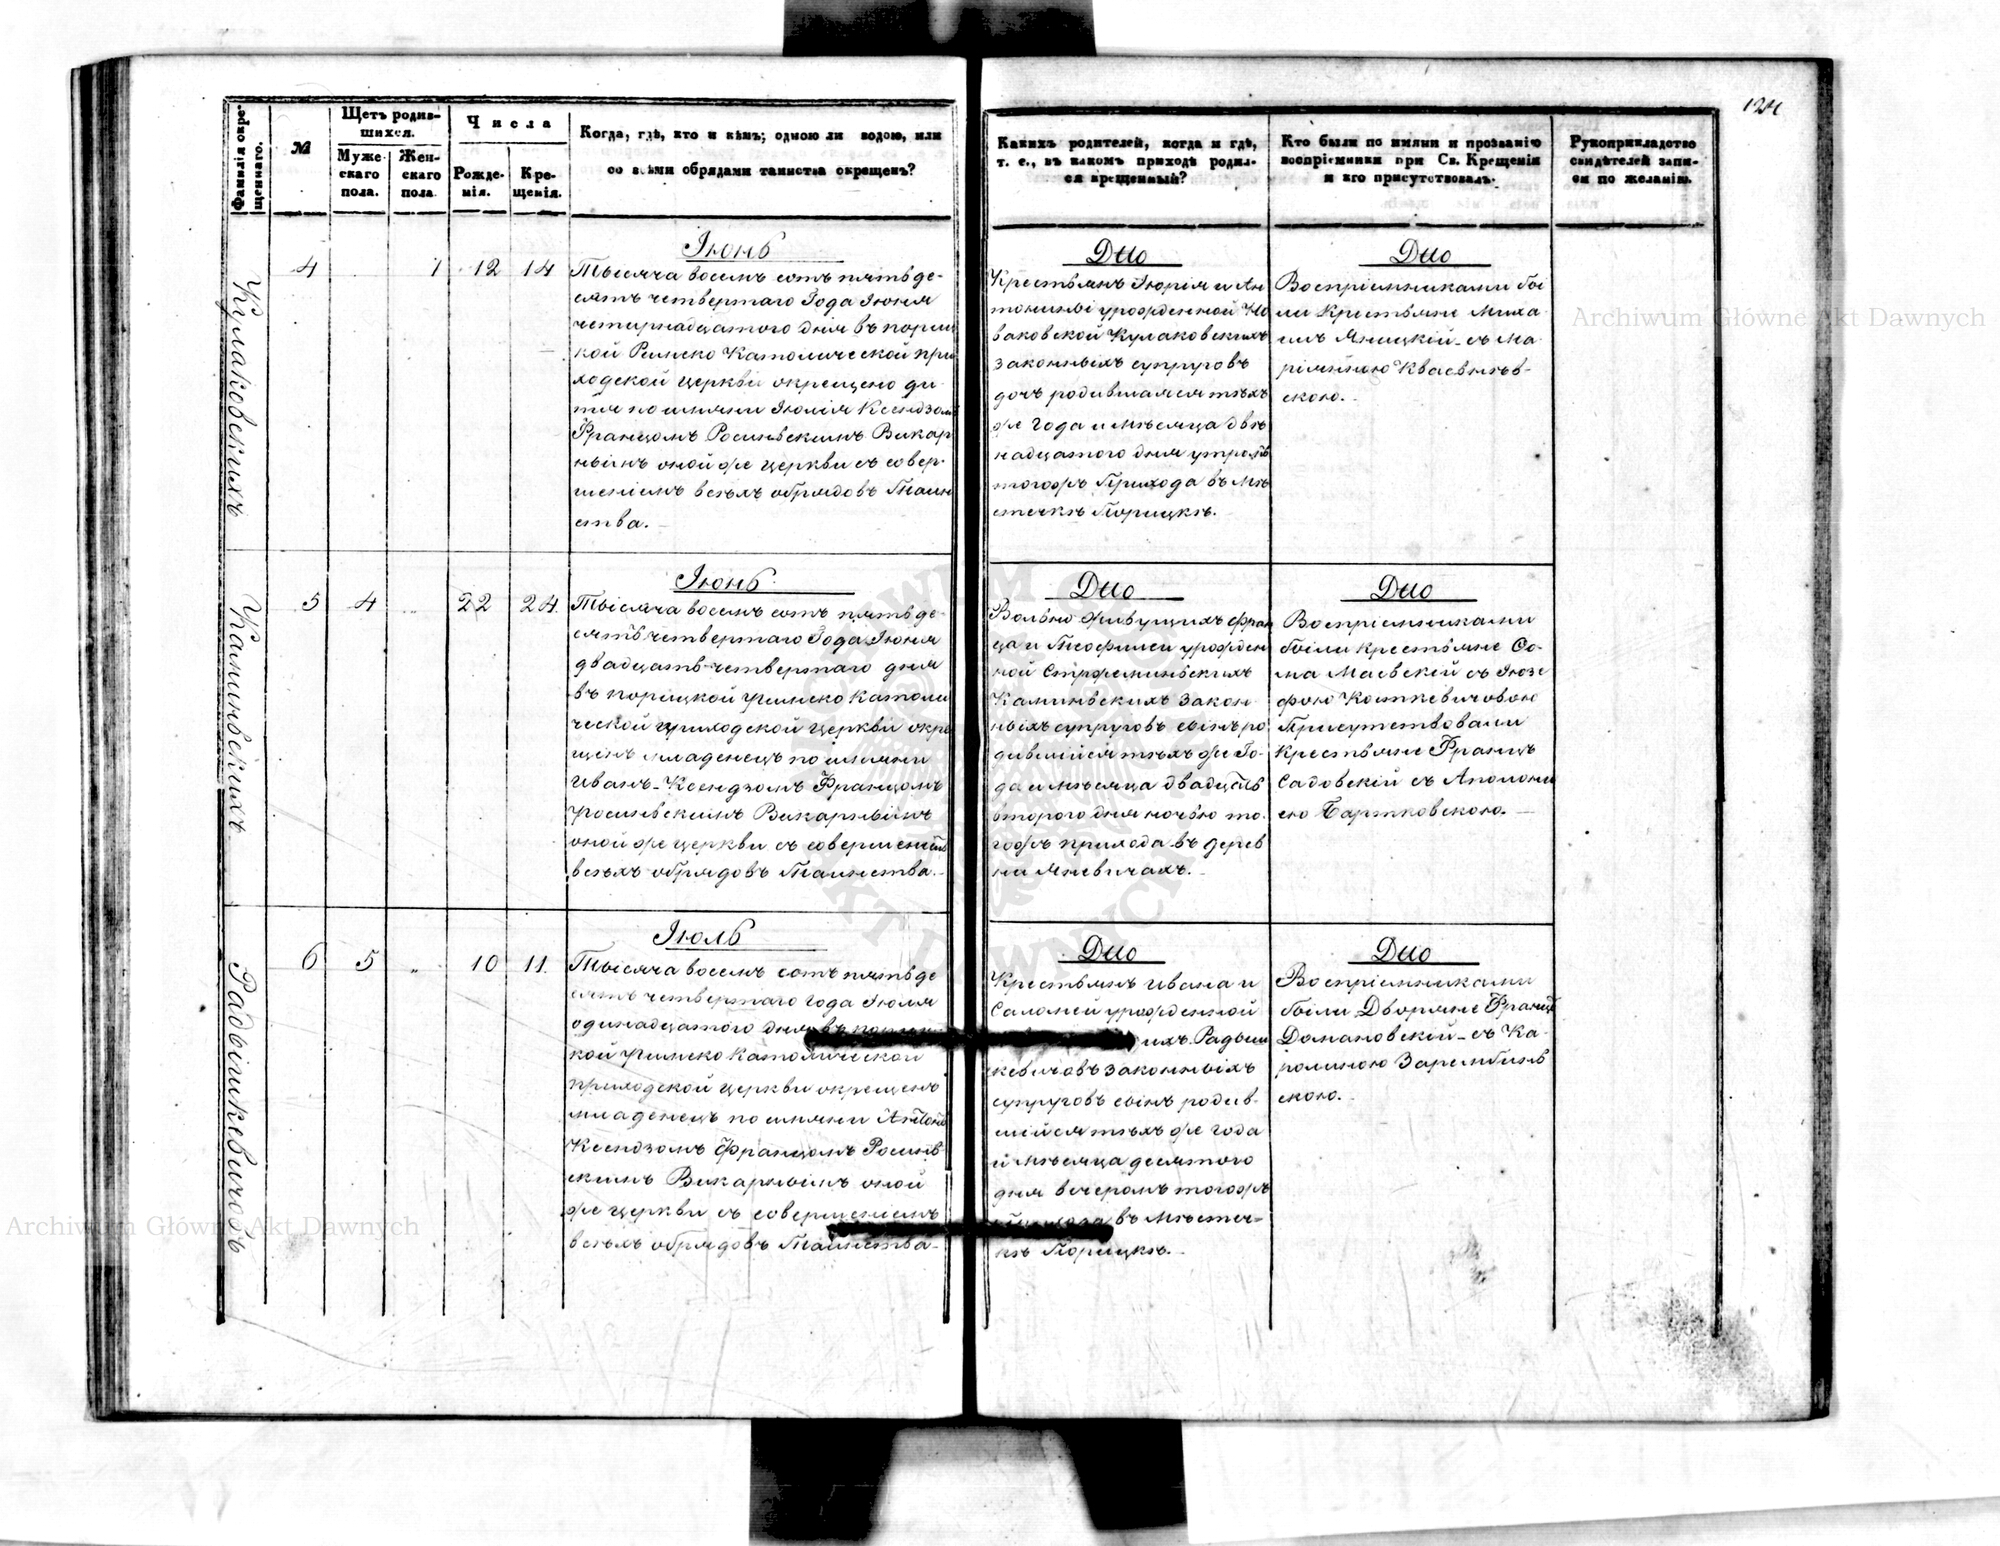 124
Фамилія окрещеннаго.
№
Щетъ родившихся.
Мужескаго пола.
Женскаго пола
Числа
Рожденія.
Крещенія.
Когда, гдѣ, кто и кѣмъ; одною ли водою, или
со всѣми обрядами таинства окрещенъ?
Какихъ родителей, когда и гдѣ,
т. е., въ какомъ приходѣ родил-
ся крещенный?
Кто были по имяни и прозванію
воспріемники при Св. Крещеніи
и кто присутствовалъ.
Рукоприкладство
свидѣтелей запи-
си по желанію.
Кулаковскихъ
4
1
12
14
Іюнь
Тысяча восемъ сотъ пятьде-
сятъ четвертаго Года Іюня
четырнадцатого дня въ порыц
кой Римско Католической при
ходской церкви окрещено ди-
тя по имяни Іюлія Ксендзомъ
Францомъ Росинскимъ Викар
нымъ оной же церкви съ совер-
шеніемъ всѣхъ обрядовъ Таин
ства.
Dito
Крестьянъ Іюрія и Ан
тонины урожденной Но
ваковской Кулаковскихъ
законныхъ супруговъ
дочъ родившаяся тѣхъ
же года и мѣсяца двѣ
надцатого дня утромъ
тогожъ Прихода въ мѣ
стечкѣ Порицкѣ.
Dito
Воспріемниками бы
ли Крестьяне Миха-
илъ Яницкій съ Ма-
ріянною Квасневъ-
скою.
Каминьскихъ
5
4
„
22
24
Іюнь
Тысяча восемъ сотъ пятьде-
сятъ четвертаго Года Іюня
двадцать четвертаго дня
въ порицкой Римско Католи
ческой приходской церкви окре
щенъ младенецъ по имяни
Иванъ Ксендзомъ Францомъ
Росиньскимъ Викарнымъ
оной же церкви съ совершеніемъ
всѣхъ обрядовъ Таинства.
Dito
Вольно живущихъ Фран
ца и Теофилеи урожден
ной Стржеминьскихъ
Каминьскихъ закон-
ныхъ супруговъ сынъ ро-
дившійся тѣхъ же Го-
да и мѣсяца двадцать
второго дня ночью то-
гожъ прихода въ дерев
ни Яневичахъ.
Dito
Воспріемниками
были Крестьяне Ѳо-
ма Маевскій съ Іюзе
фою Косткевичовою
Присутствовали
Крестьяне Францъ
Садовскій съ Аполони
ею Бартковскою.
Радышкевичовъ
6
5
„
10
11.
Іюль
Тысяча восемъ сотъ пятьде
сятъ четвертаго года Іюля
одинадцатого дня въ
кой Римско Католической
приходской церкви окрещенъ
младенецъ по имяни Антонъ
Ксендзомъ Францомъ Росинь-
скимъ Викарнымъ оной
же церкви съ совершеніемъ
всѣхъ обрядовъ Таинства
Dito
Крестьянъ Ивана и
Саломеи урожденной
ихъ Радыш
кевичовъ законныхъ
супруговъ сынъ родив-
шійся тѣхъ же года
и мѣсяца десятого
дня вечеромъ тогожъ
въ мѣстеч-
кѣ Порицкѣ.
Dito
Воспріемниками
были Дворяне Францъ
Домановскій съ Ка-
ролиною Зарембинь
скою.
Archiwum Główne Akt Dawnych
Archiwum Główne Akt Dawnych